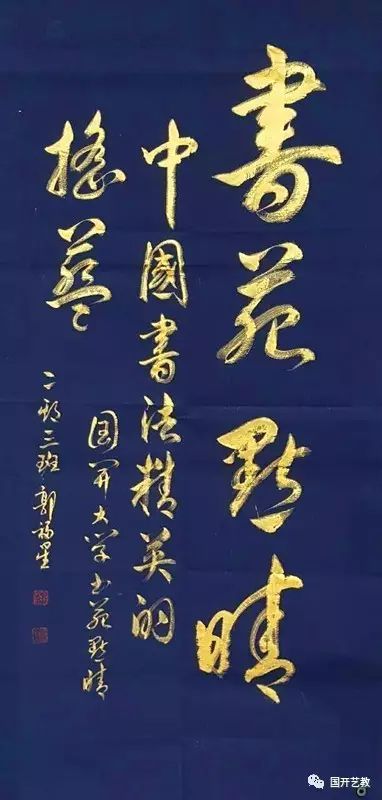 書苑點睛
中國書法精英的
搖藍
国開大学书苑點睛
二期三班郭福星
国开艺教